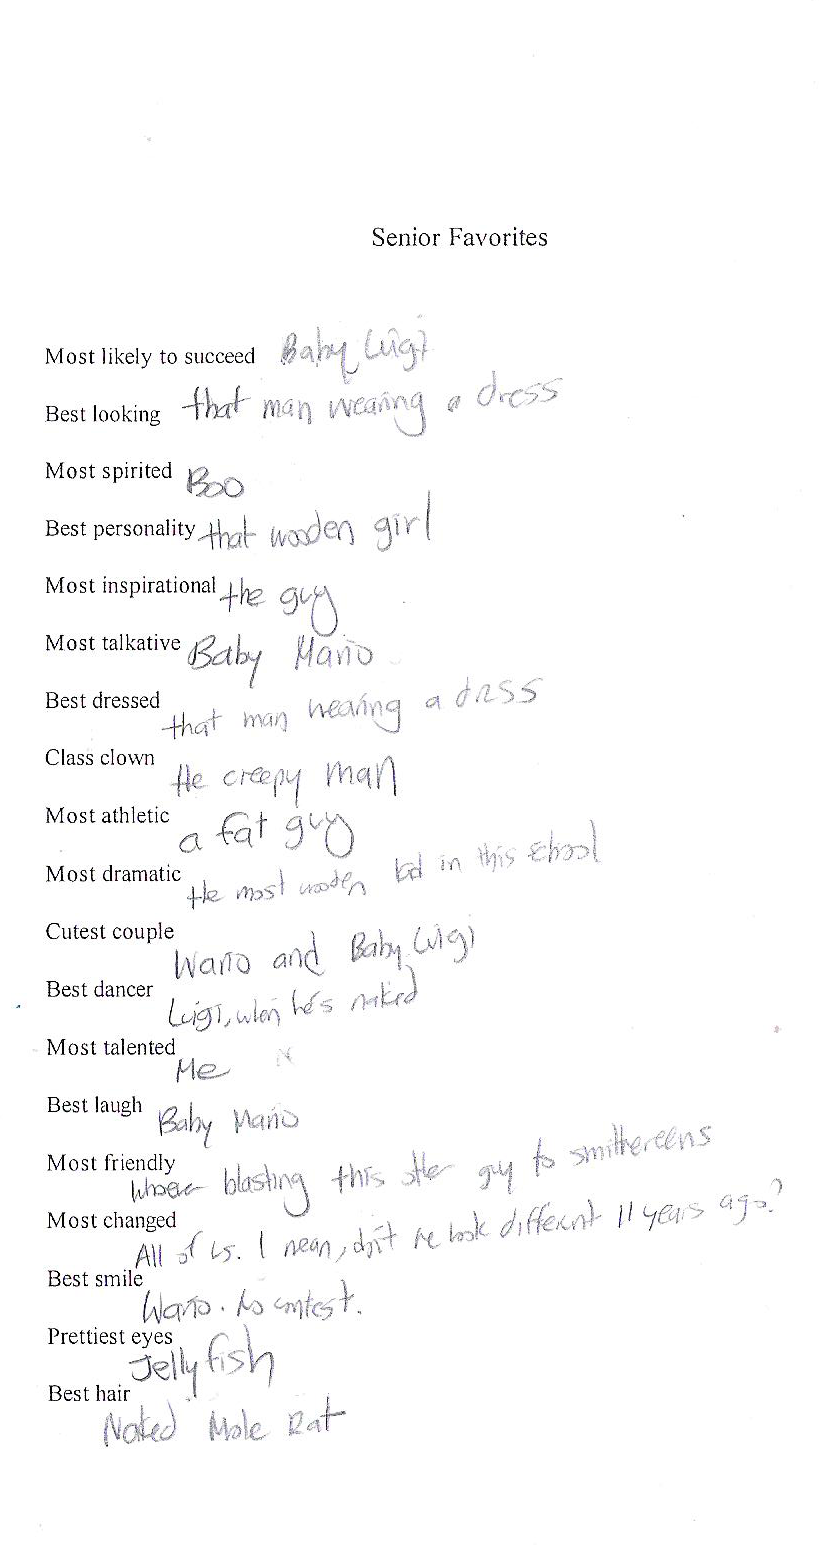 Senior Favorites
Most likely to succeed Baby Luigi
Best looking that man wearing a dress
Most spirited Boo
Best personality that wooden girl
Most inspirational the guy
Most talkative Baby Mario
Best dressed that man wearing a dress
Class clown the creepy man
Most athletic a fat guy
Most dramatic the most wooden kid in this school
Cutest couple Wario and Baby Luigi
Best dancer Luigi, when he's naked
Most talented Me
Best laugh Baby Mario
Most friendly blasting this other guy to smithereens
Most changed All of us. I mean, don't we look different 11 years ago?
Best smile Wario. No contest.
Prettiest eyes Jellyfish
Best hair Naked Mole Rat